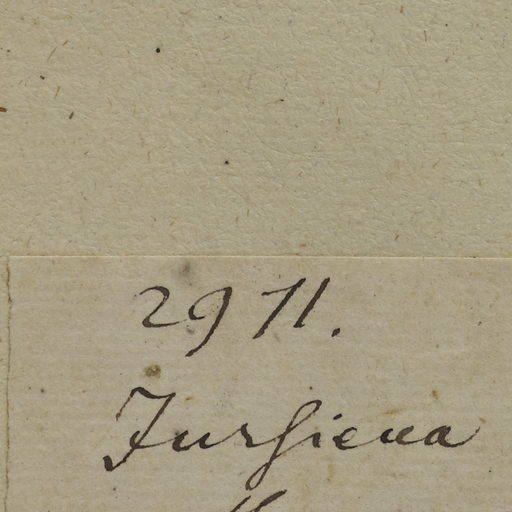 2971.
Jussieua